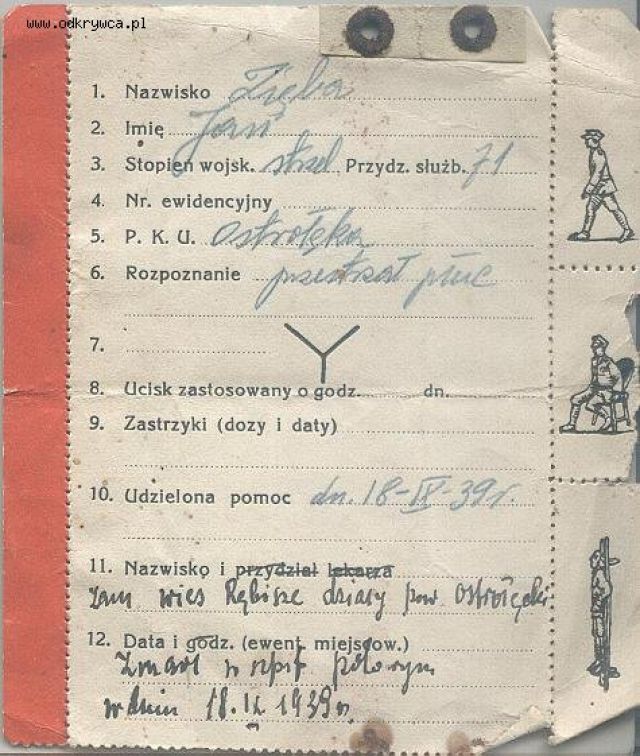 www.odkrywca.pl
1. Nazwisko Zięba
2. Imię Jan
3. Stopień wojsk. strzel Przydz. służb. 71
4. Nr. ewidencyjny
5. P. K. U. Ostrołęka
6. Rozpoznanie przestrzał płuc
7.
8. Ucisk zastosowany o godz. dn.
9. Zastrzyki (dozy i daty)
10. Udzielona pomoc dn. 18-IX-39r.
11. Nazwisko i przydział lekarza
zam wieś Rębisze działy pow Ostrołęcki
12. Data i godz. (ewent. miejscow.)
Zmarł w szpit polowym
w dniu 18.IX 1939 r.